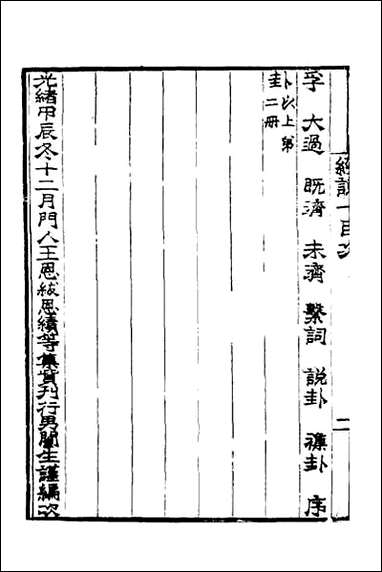 經說一目次
二
孚 大過 既濟 未濟 繫詞 說卦 襍卦 序
卦以上第二冊
光緒甲辰冬十二月門人王恩紱恩績等集貲刋行男闓生謹編次